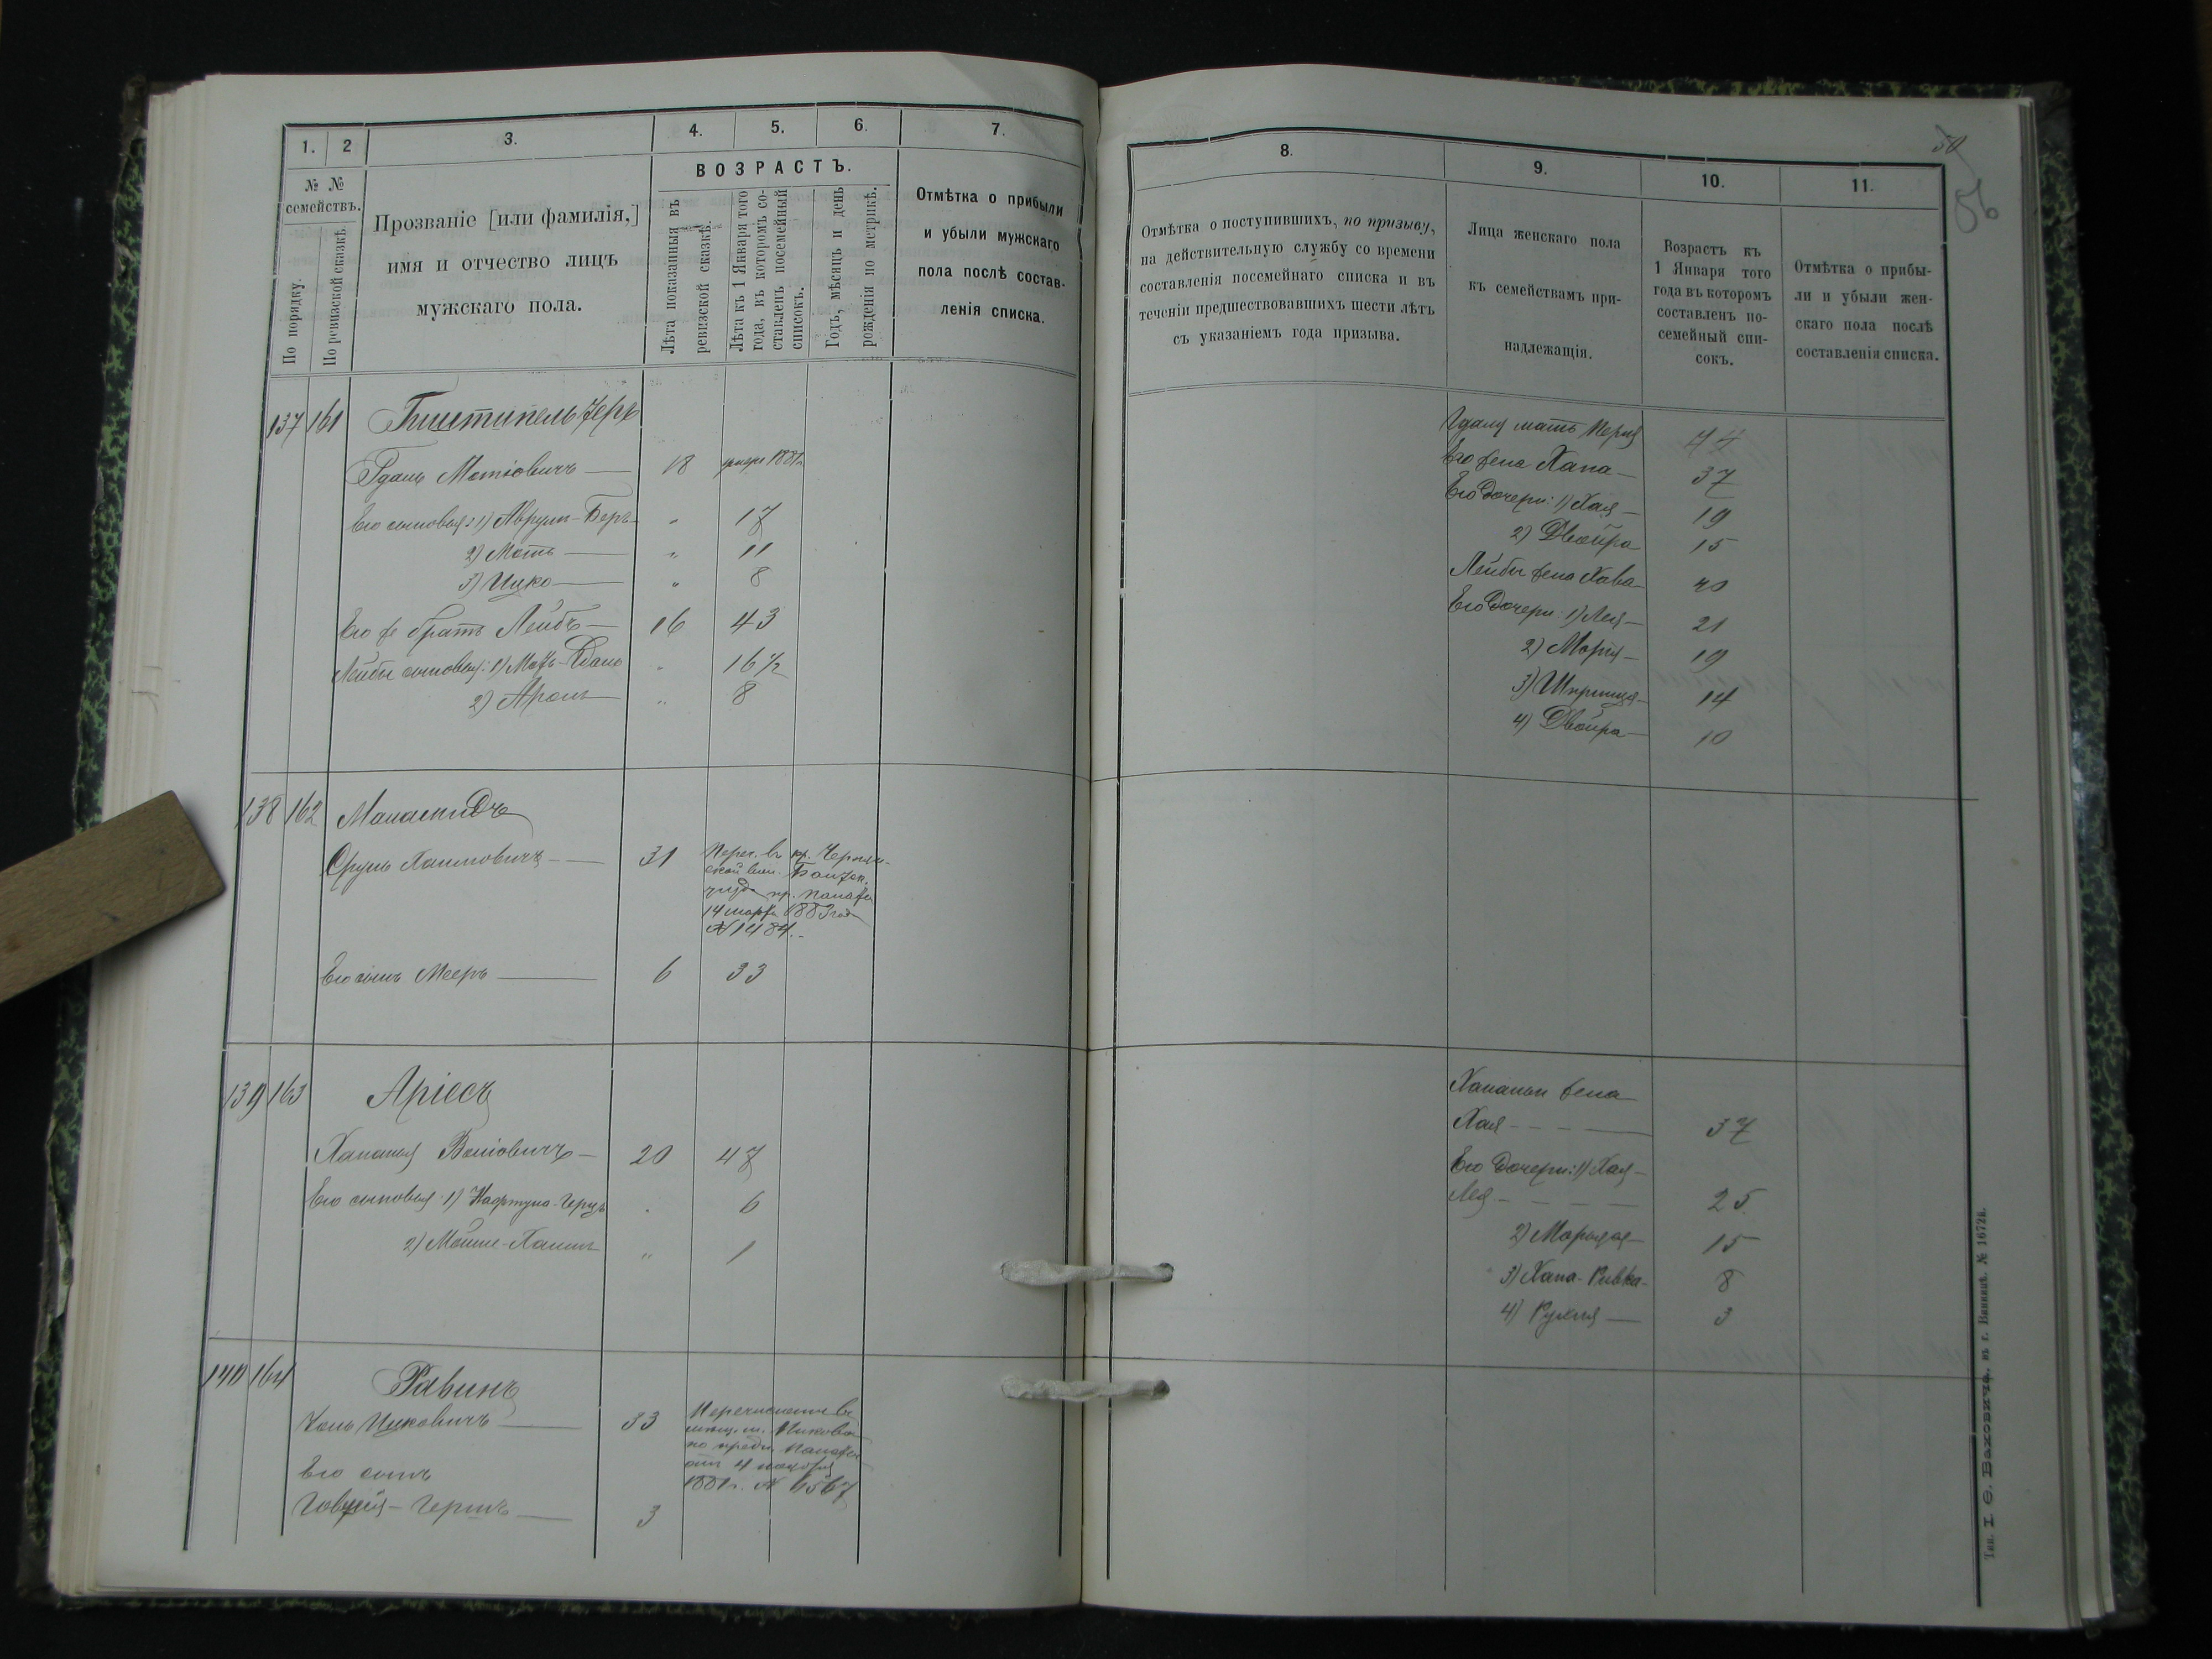 1. 2 3. 4. 5. 6. 7.
№ № семействъ.
По порядку.
По ревизской сказкѣ.
Прозваніе [или фамилія,]
имя и отчество лицъ
мужскаго пола.
ВОЗРАСТЪ.
Лѣта показанныя въ
ревизской сказкѣ.
Лѣта къ 1 Января того
года, въ которомъ со-
ставленъ посемейный
списокъ.
Годъ, мѣсяцъ и день
рожденія по метрикѣ.
Отмѣтка о прибыли
и убыли мужскаго
пола послѣ состав-
ленія списка.
137 161
Гдаль Мотіовичъ — 18 1881г.
Его сыновья: 1) Аврумъ-Беръ — " 17
2) Моть — " 11
3) Ицко — " 8
Его же братъ Лейбъ — 16 43
Лейбы сыновья: 1) 16½
2) Аронъ — " 8
138 162
Срулъ Хаимовичъ — 31
14 марта 1883 года
№ 1484.
Его сынъ Мееръ — 6 33
139 163 Аріесъ
Хананья 20 47
Его сыновья: 1) Нафтула-Герцъ " 6
2) Мошие-Хаимъ " 1
140 164 Равинъ
Ицковичъ — 33 Перечисленъ въ
по предп. Палаты
отъ 4
1881г. №
Его сынъ
Гершъ — 3
50
8. 9. 10. 11.
Отмѣтка о поступившихъ, по призыву,
на действительную службу со времени
составленія посемейнаго списка и въ
теченіи предшествовавшихъ шести лѣтъ
съ указаніемъ года призыва.
Лица женскаго пола
къ семействамъ при-
надлежащія.
Возрастъ къ
1 Января того
года въ которомъ
составленъ по-
семейный спи-
сокъ.
Отмѣтка о прибы-
ли и убыли жен-
скаго пола послѣ
составленія списка.
мать 44
Его жена Хана — 37
Его дочери: 1) Хая — 19
2) Двойра 15
Лейбы жена Хава — 40
Его дочери: 1) Лея — 21
2) 19
3) Шпринца — 14
4) Двойра — 10
Хананьи жена
Хая — — — 37
Его дочери: 1) Хая —
Лея — — — 25
2) 15
3) Хана-Ривка — 8
4) Рухля — 3
въ г. Винницѣ. № 1672й.